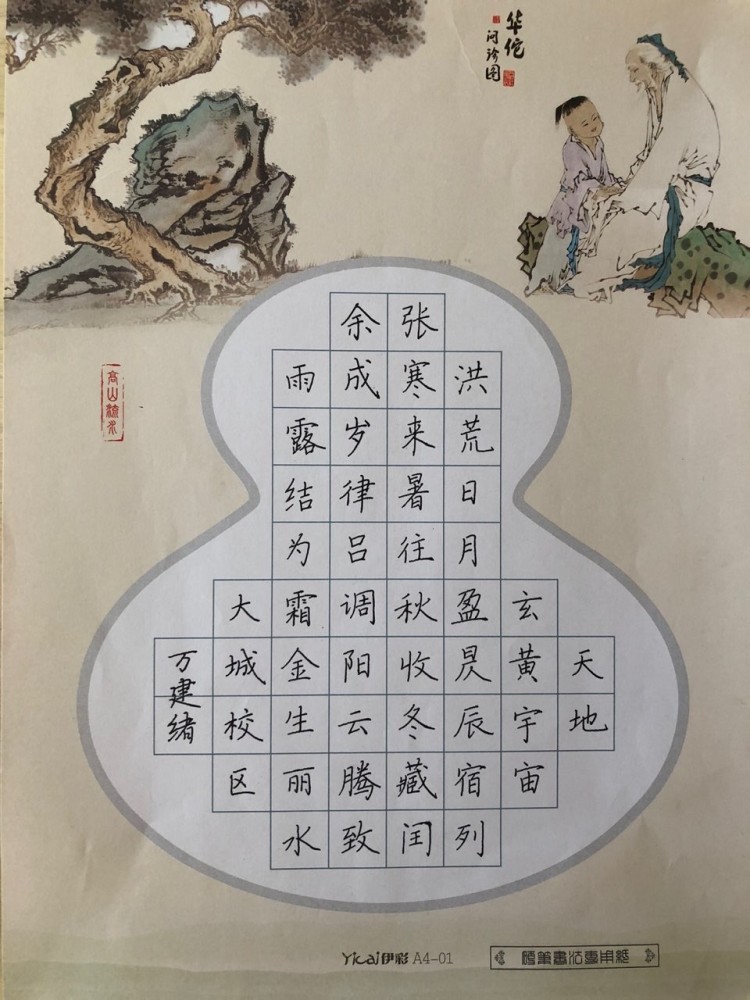 华佗
问诊图
高山流水
天地
玄黄宇宙
洪荒日月盈昃辰宿列
张寒来暑往秋收冬藏闰
余成岁律吕调阳云腾致
雨露结为霜金生丽水
大城校区
万建绪
Yicai伊彩 A4-01
硬筆書法專用紙